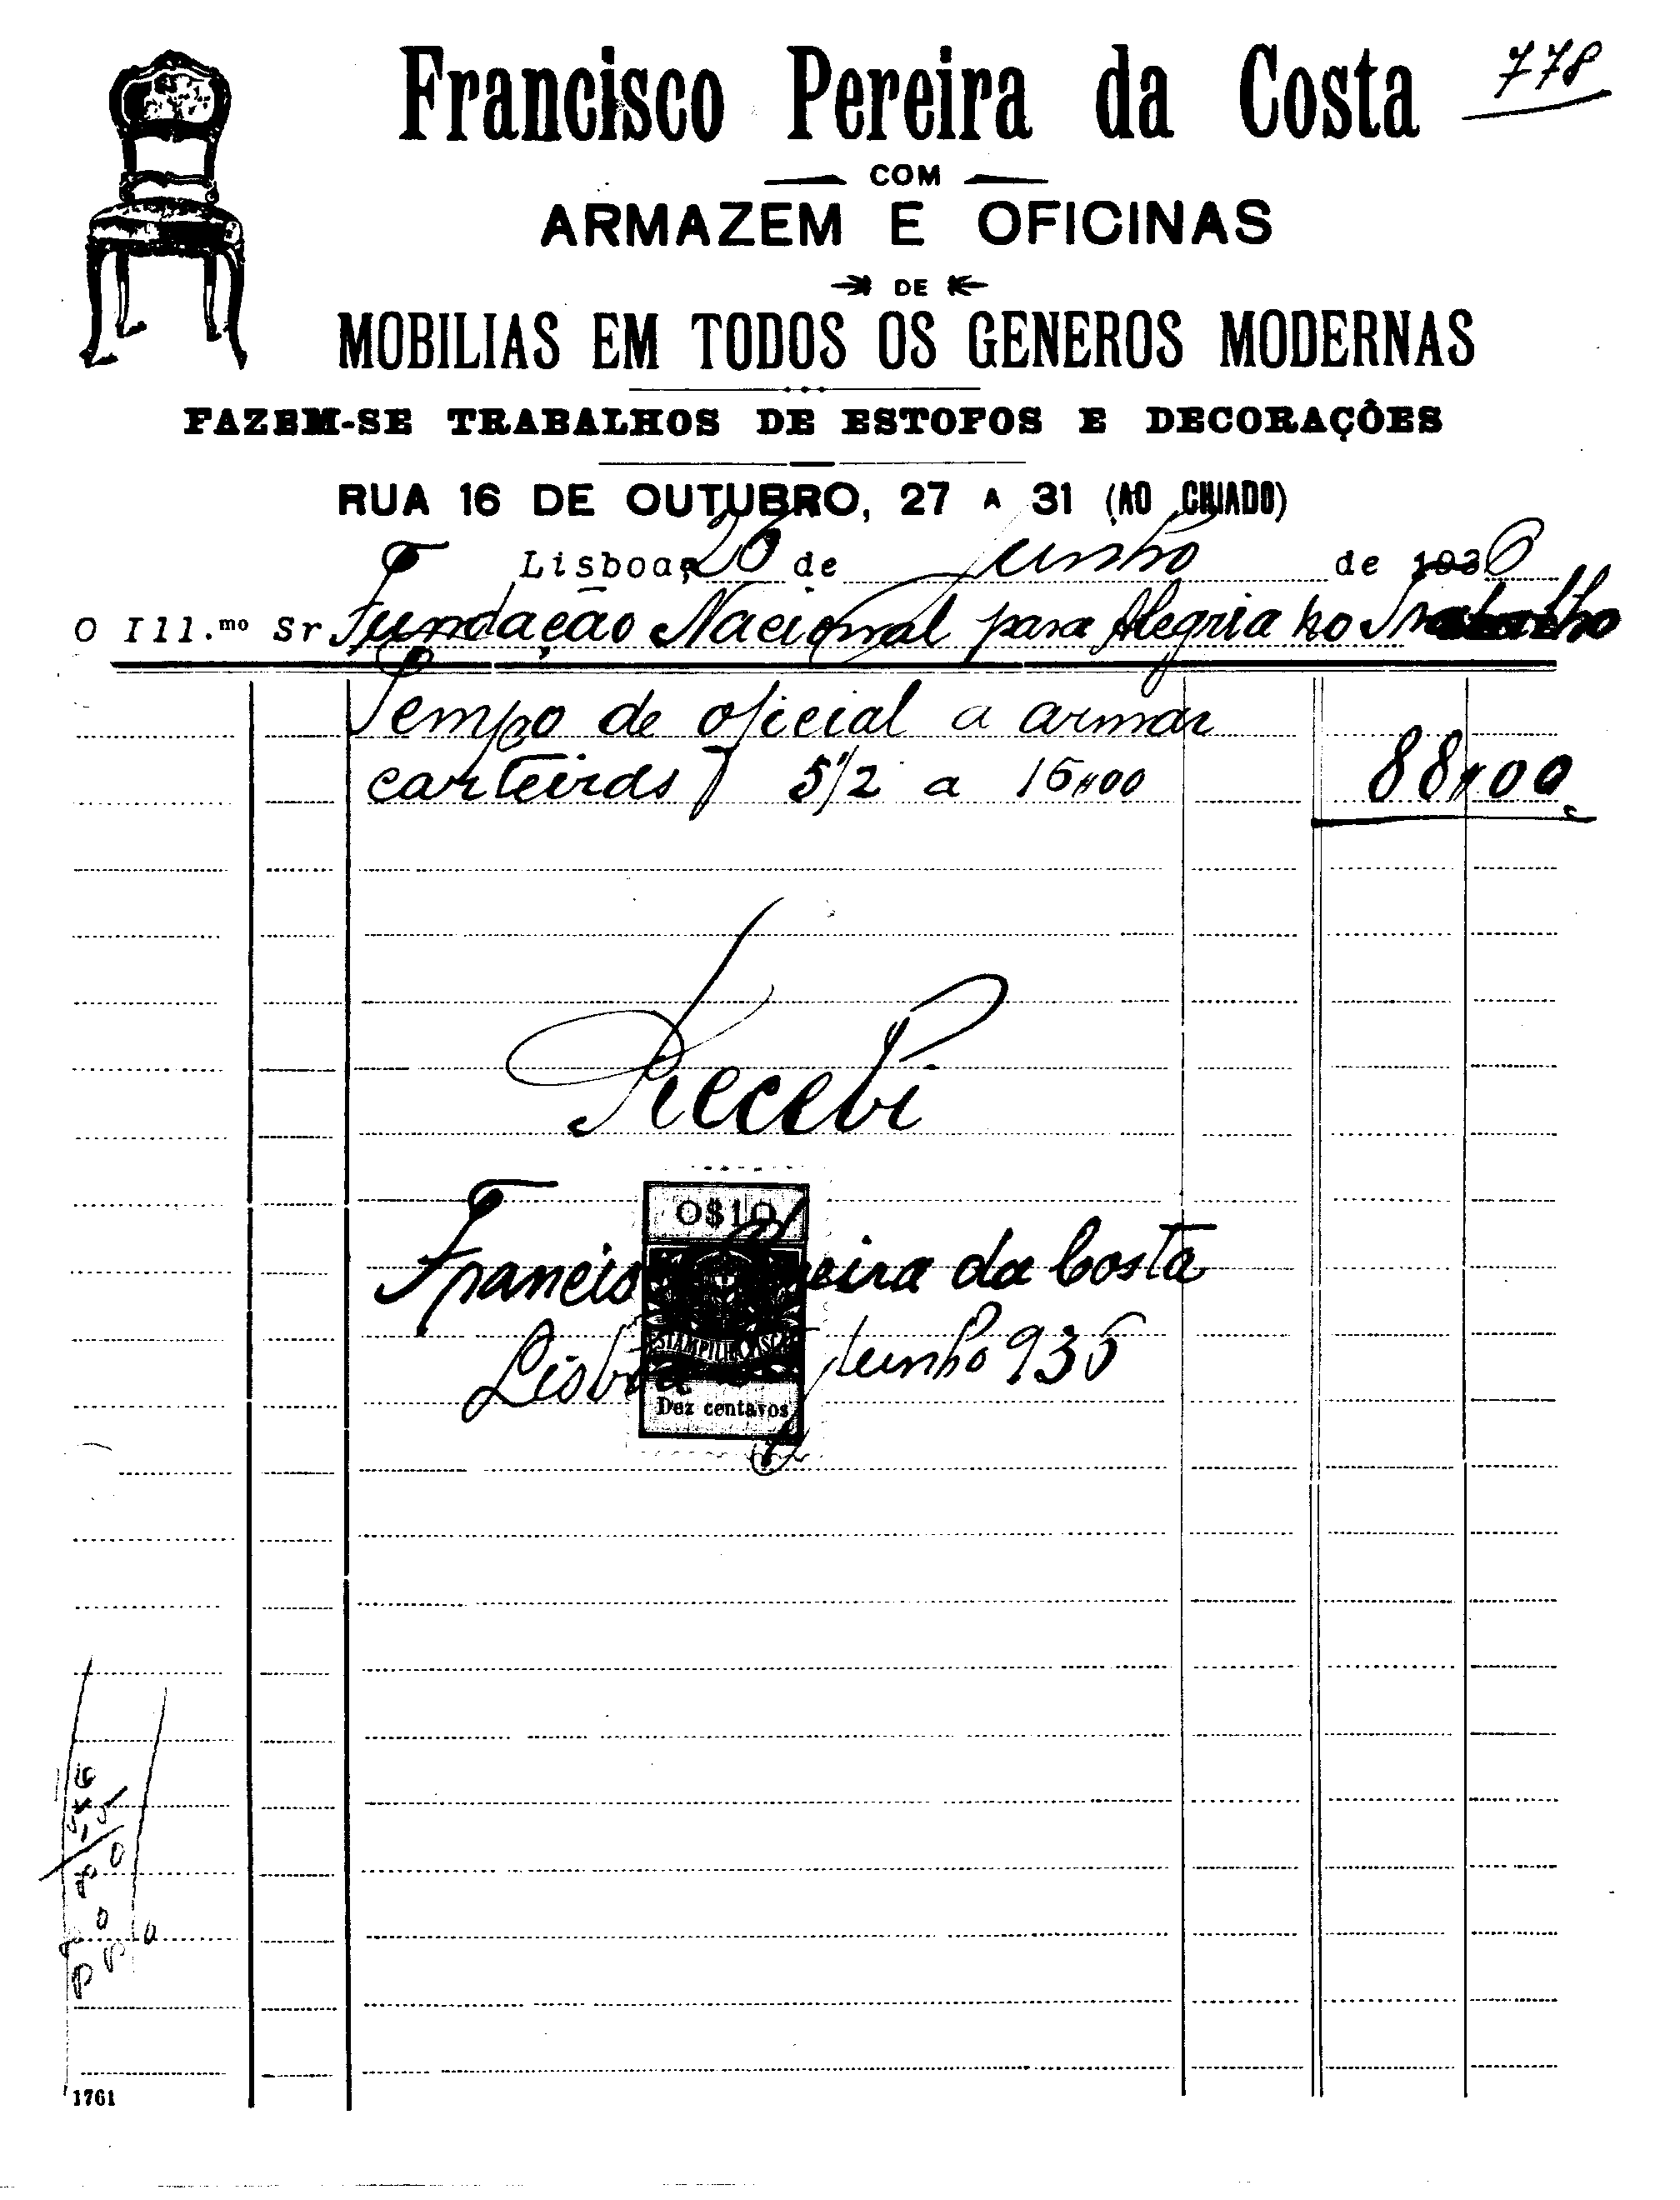 Francisco Pereira da Costa 778
COM
ARMAZEM E OFICINAS
DE
MOBILIAS EM TODOS OS GENEROS MODERNAS
FAZEM-SE TRABALHOS DE ESTOFOS E DECORAÇÕES
RUA 16 DE OUTUBRO, 27 A 31 (AO CHIADO)
Lisboa, 26 de Junho de 1936
O Ill.mo Sr Fundação Nacional para Alegria no Trabalho
Tempo de oficial a armar
carteiras 5 1/2 a 16$00 88$00
Recebi
O$10
Francisco Pereira da Costa
ESTAMPILHA FISCAL
Lisboa Junho 936
Dez centavos
1761